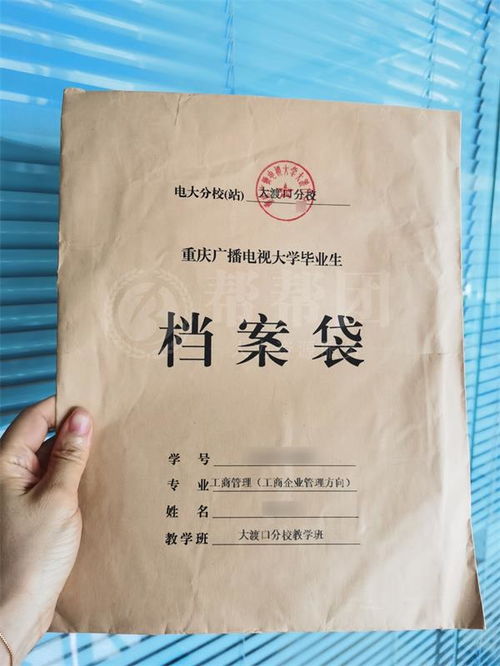 电大分校(站) 大渡口分校
重庆广播电视大学毕业生
帮帮团
档案袋
学号
专业 工商管理（工商企业管理方向）
姓名
教学班 大渡口分校教学班